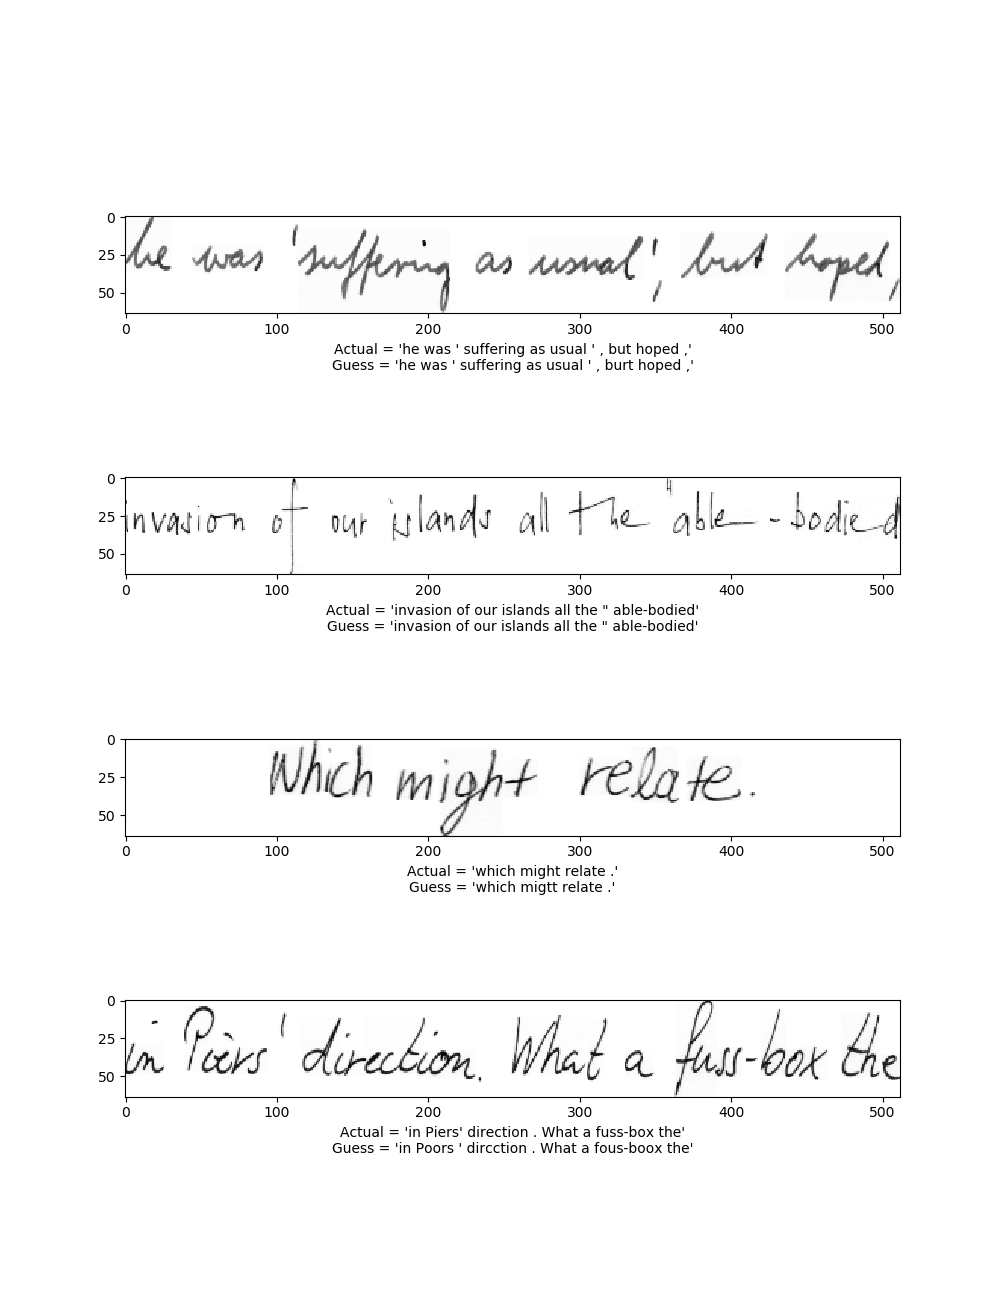 0
25
50
he was 'suffering as usual', but hoped,
0 100 200 300 400 500
Actual = 'he was ' suffering as usual ' , but hoped ,'
Guess = 'he was ' suffering as usual ' , burt hoped ,'
0
25
50
invasion of our islands all the "able-bodied
0 100 200 300 400 500
Actual = 'invasion of our islands all the " able-bodied'
Guess = 'invasion of our islands all the " able-bodied'
0
25
50
Which might relate.
0 100 200 300 400 500
Actual = 'which might relate .'
Guess = 'which migtt relate .'
0
25
50
in Piers' direction. What a fuss-box the
0 100 200 300 400 500
Actual = 'in Piers' direction . What a fuss-box the'
Guess = 'in Poors ' dircction . What a fous-boox the'